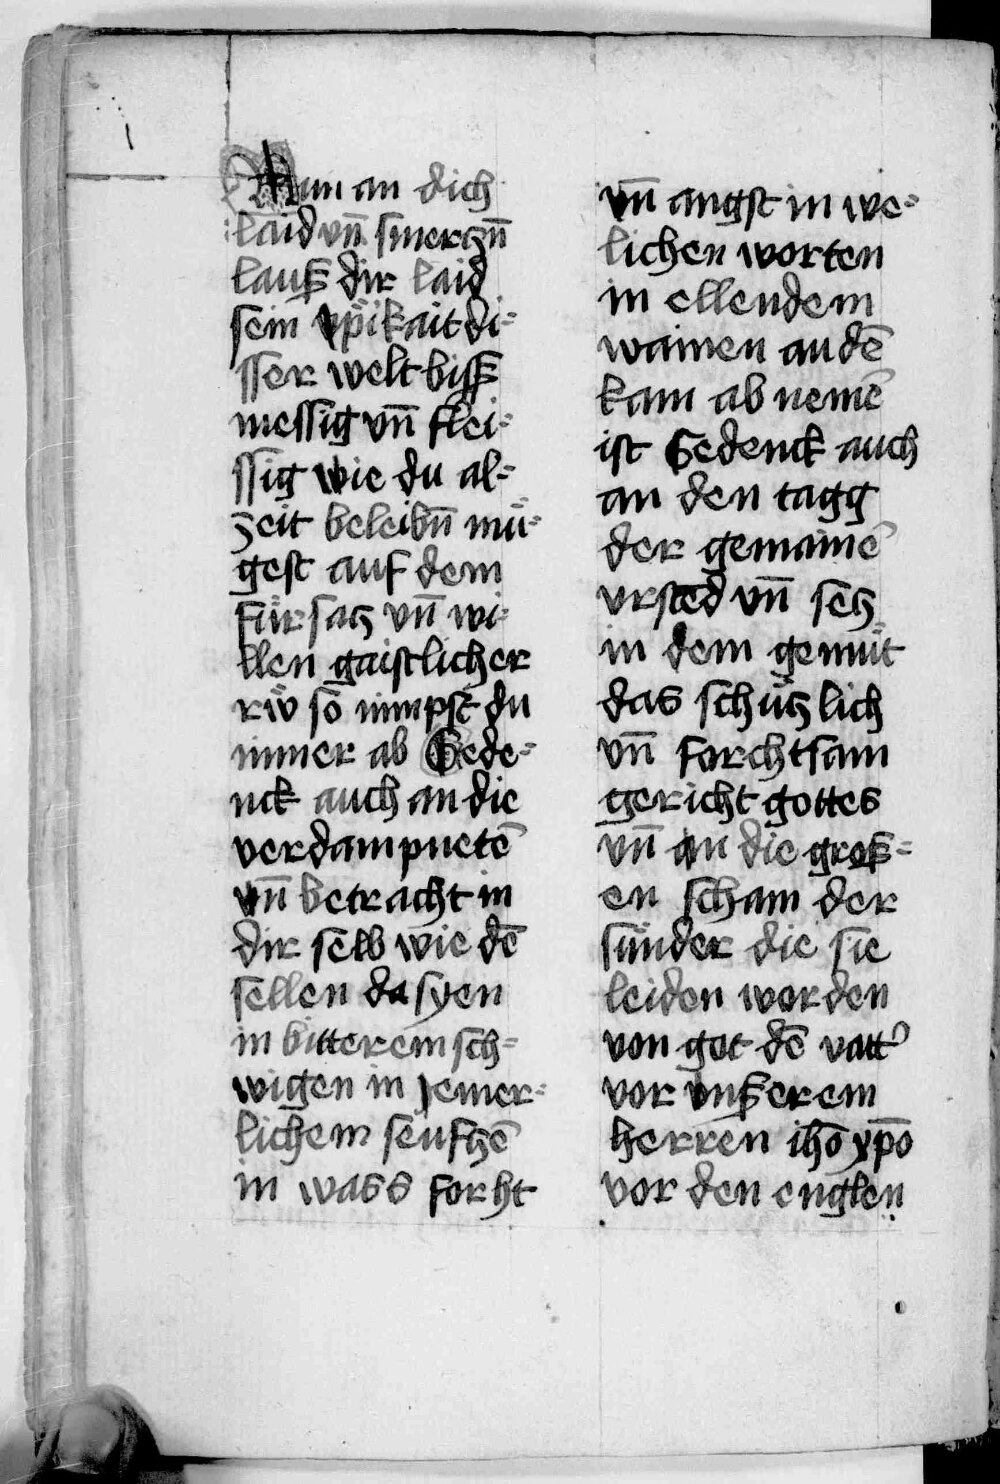 Nim an dich
laid vn̄ smerczn̄
lausz dir laid
sein vpikait di-
sser welt bissz
messig vn̄ flei-
ssig wie du al-
zeit beleibn̄ mü-
gest auf dem
fürsatz vn̄ wi-
llen gaistlicher
rẘ so nimpst du
nimer ab Gede-
nck auch an die
verdampnetē
vn̄ betracht in
dir selb wie dē
sellen da syen
in bitterem sch-
wigen in jemer-
lichem seufczē
in wass forht
vn̄ angst in we-
lichen worten
in ellendem
wainen an dē
kam ab nemē
ist Gedenck auch
an den tagg
der gemainē
vrsted vn̄ secz
in dem gemüt
das schüczlich
vn̄ forchtsam
gericht gottes
vn̄ an die grosz-
en scham der
sünder die sie
leiden werden
von got dē vatt͛
vor vnszerem
herren ihō xp̄o
vor den englen